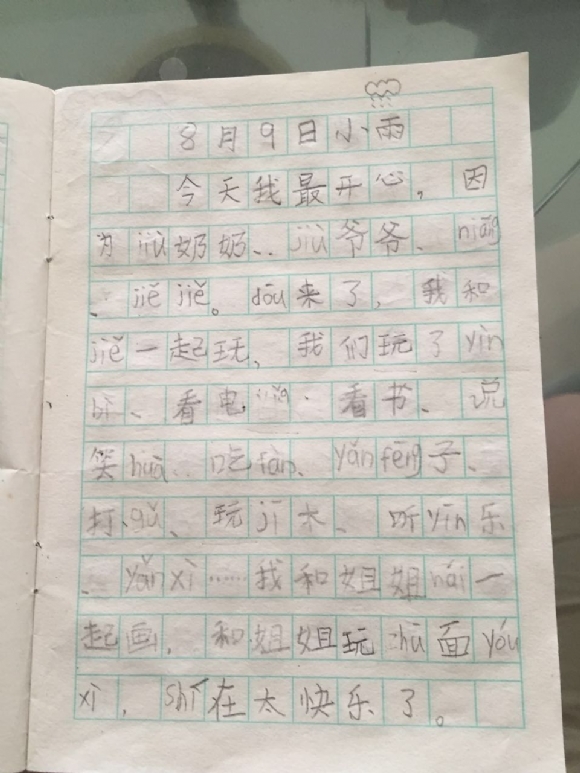 8月9日小雨
今天我最开心，因
为jiù奶奶、jiù爷爷、niáng
、jiě jiě。dōu来了，我和
jiě一起玩，我们玩了yìn
bì、看电 、看书、说
笑huà、吃fàn、yǎn fēng子、
打gǔ、玩jī木、听yīn乐
、yǎn xì……我和姐姐hái一
起画，和姐姐玩zhū面yóu
xì，shí在太快乐了。